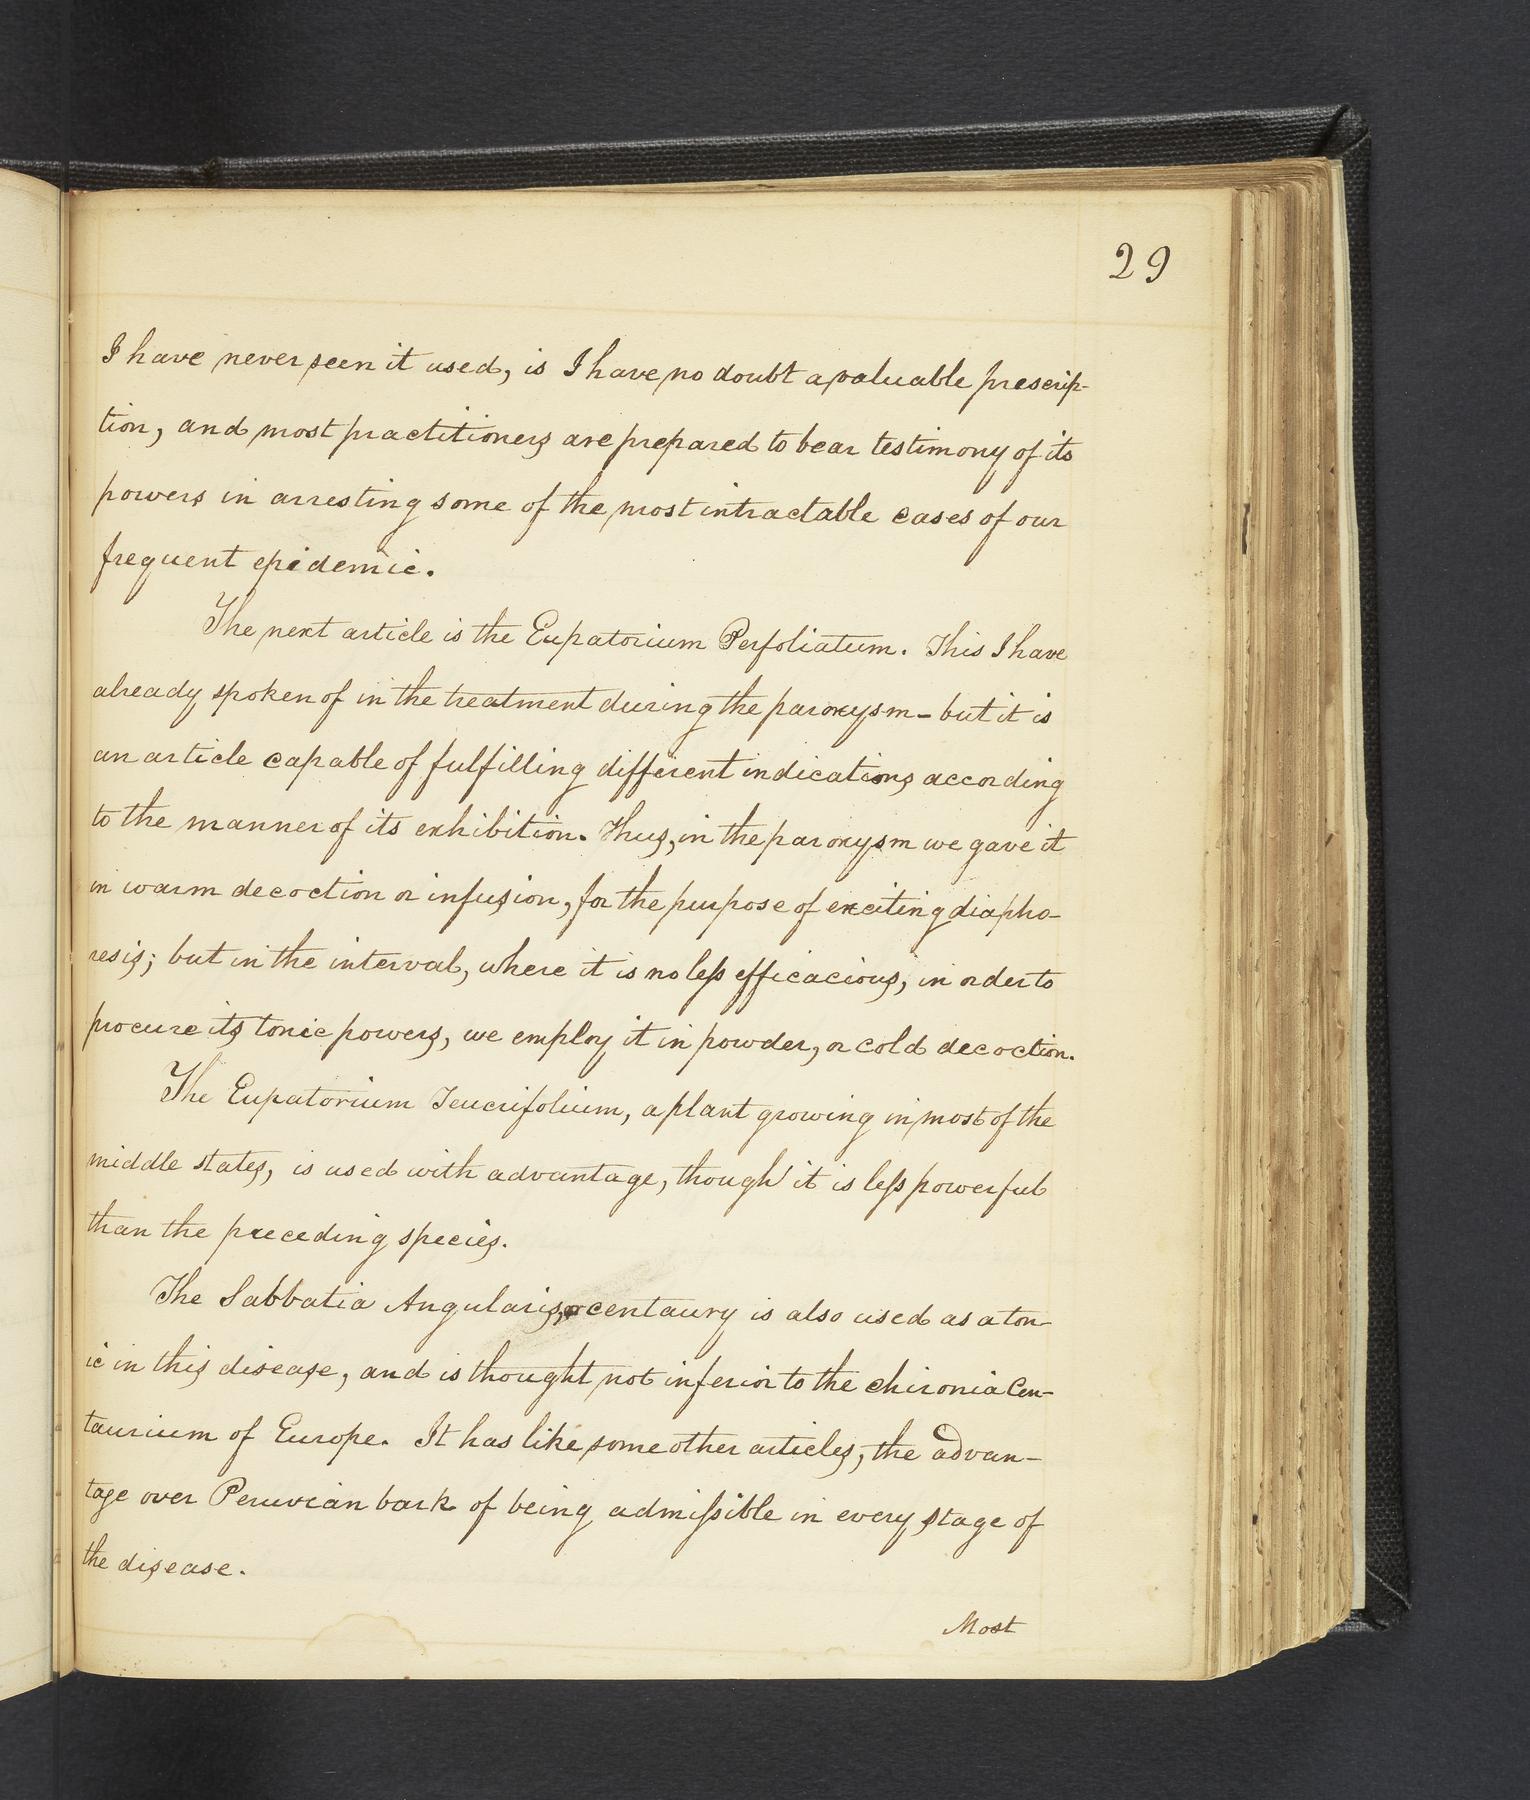 29
I have never seen it used, is I have no doubt a valuable prescrip-
tion, and most practitioners are prepared to bear testimony of its
powers in arresting some of the most intractable cases of our
frequent epidemic.
The next article is the Eupatorium Perfoliatum. This I have
already spoken of in the treatment during the paroxysm - but it is
an article capable of fulfilling different indications according
to the manner of its exhibition. Thus, in the paroxysm we gave it
in warm decoction or infusion, for the purpose of exciting diapho-
resis; but in the interval, where it is no less efficacious, in order to
procure its tonic powers, we employ it in powder, or cold decoction.
The Eupatorium Teucrifolium, a plant growing in most of the
middle states, is used with advantage, though it is less powerful
than the preceding species.
The Sabbatia Angularis, or centaury is also used as a ton-
ic in this disease, and is thought not inferior to the chironia Cen-
taurium of Europe. It has like some other articles, the advan-
tage over Peruvian bark of being admissible in every stage of
the disease.
Most